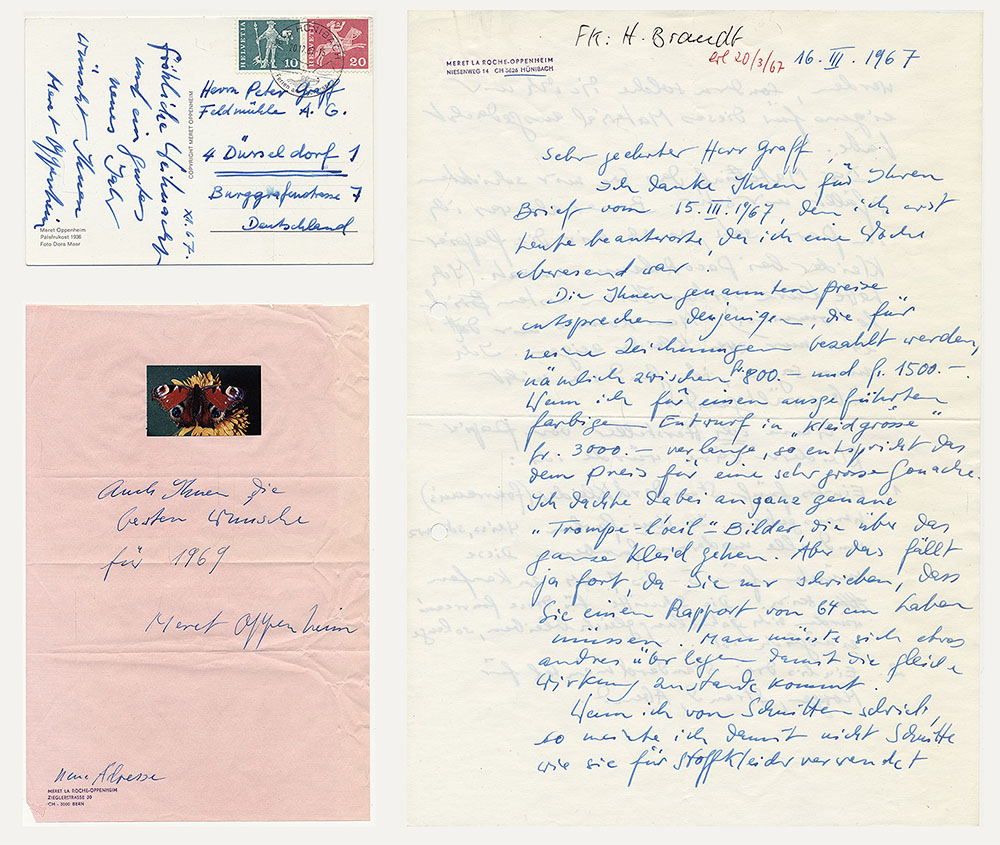 HELVETIA
10
HELVETIA
20
HÜNIBACH
Herrn Peter Graff
Feldmühle A. G.
4 Düsseldorf 1
Burggrafenstrasse 7
Deutschland
COPYRIGHT MERET OPPENHEIM
XI. 67.
Fröhliche Weihnacht
und ein gutes
neues Jahr
wünscht Ihnen
Meret Oppenheim
Meret Oppenheim
Foto Dora Maar
Auch Ihnen die
besten Wünsche
für 1969
Meret Oppenheim
neue Adresse
MERET LA ROCHE-OPPENHEIM
ZIEGLERSTRASSE 30
CH - 3000 BERN
FK: H. Brandt
MERET LA ROCHE-OPPENHEIM
NIESENWEG 14 CH 3626 HÜNIBACH
erl 20/3/67
16. III. 1967
Sehr geehrter Herr Graff,
Ich danke Ihnen für Ihren
Brief vom 15. III. 1967, den ich erst
heute beantworte, da ich eine Woche
abwesend war.
Die Ihnen genannten Preise
entsprechen denjenigen, die für
meine Zeichnungen bezahlt werden,
nämlich zwischen fr. 800.— und fr. 1500.—.
Wenn ich für einen ausgeführten
farbigen Entwurf in „Kleidgrösse"
fr. 3000.— verlange, so entspricht das
dem Preis für eine sehr grosse Gouache.
Ich dachte dabei an ganz genaue
„Trompe-l'oeil"-Bilder, die über das
ganze Kleid gehen. Aber das fällt
ja fort, da Sie mir schreiben, dass
Sie einen Rapport von 64 cm haben
müssen. Man müsste sich etwas
andres überlegen damit die gleiche
Wirkung zustande kommt.
Wenn ich von Schnitten schrieb,
so meinte ich damit nicht Schnitte
wie sie für Stoffkleider verwendet